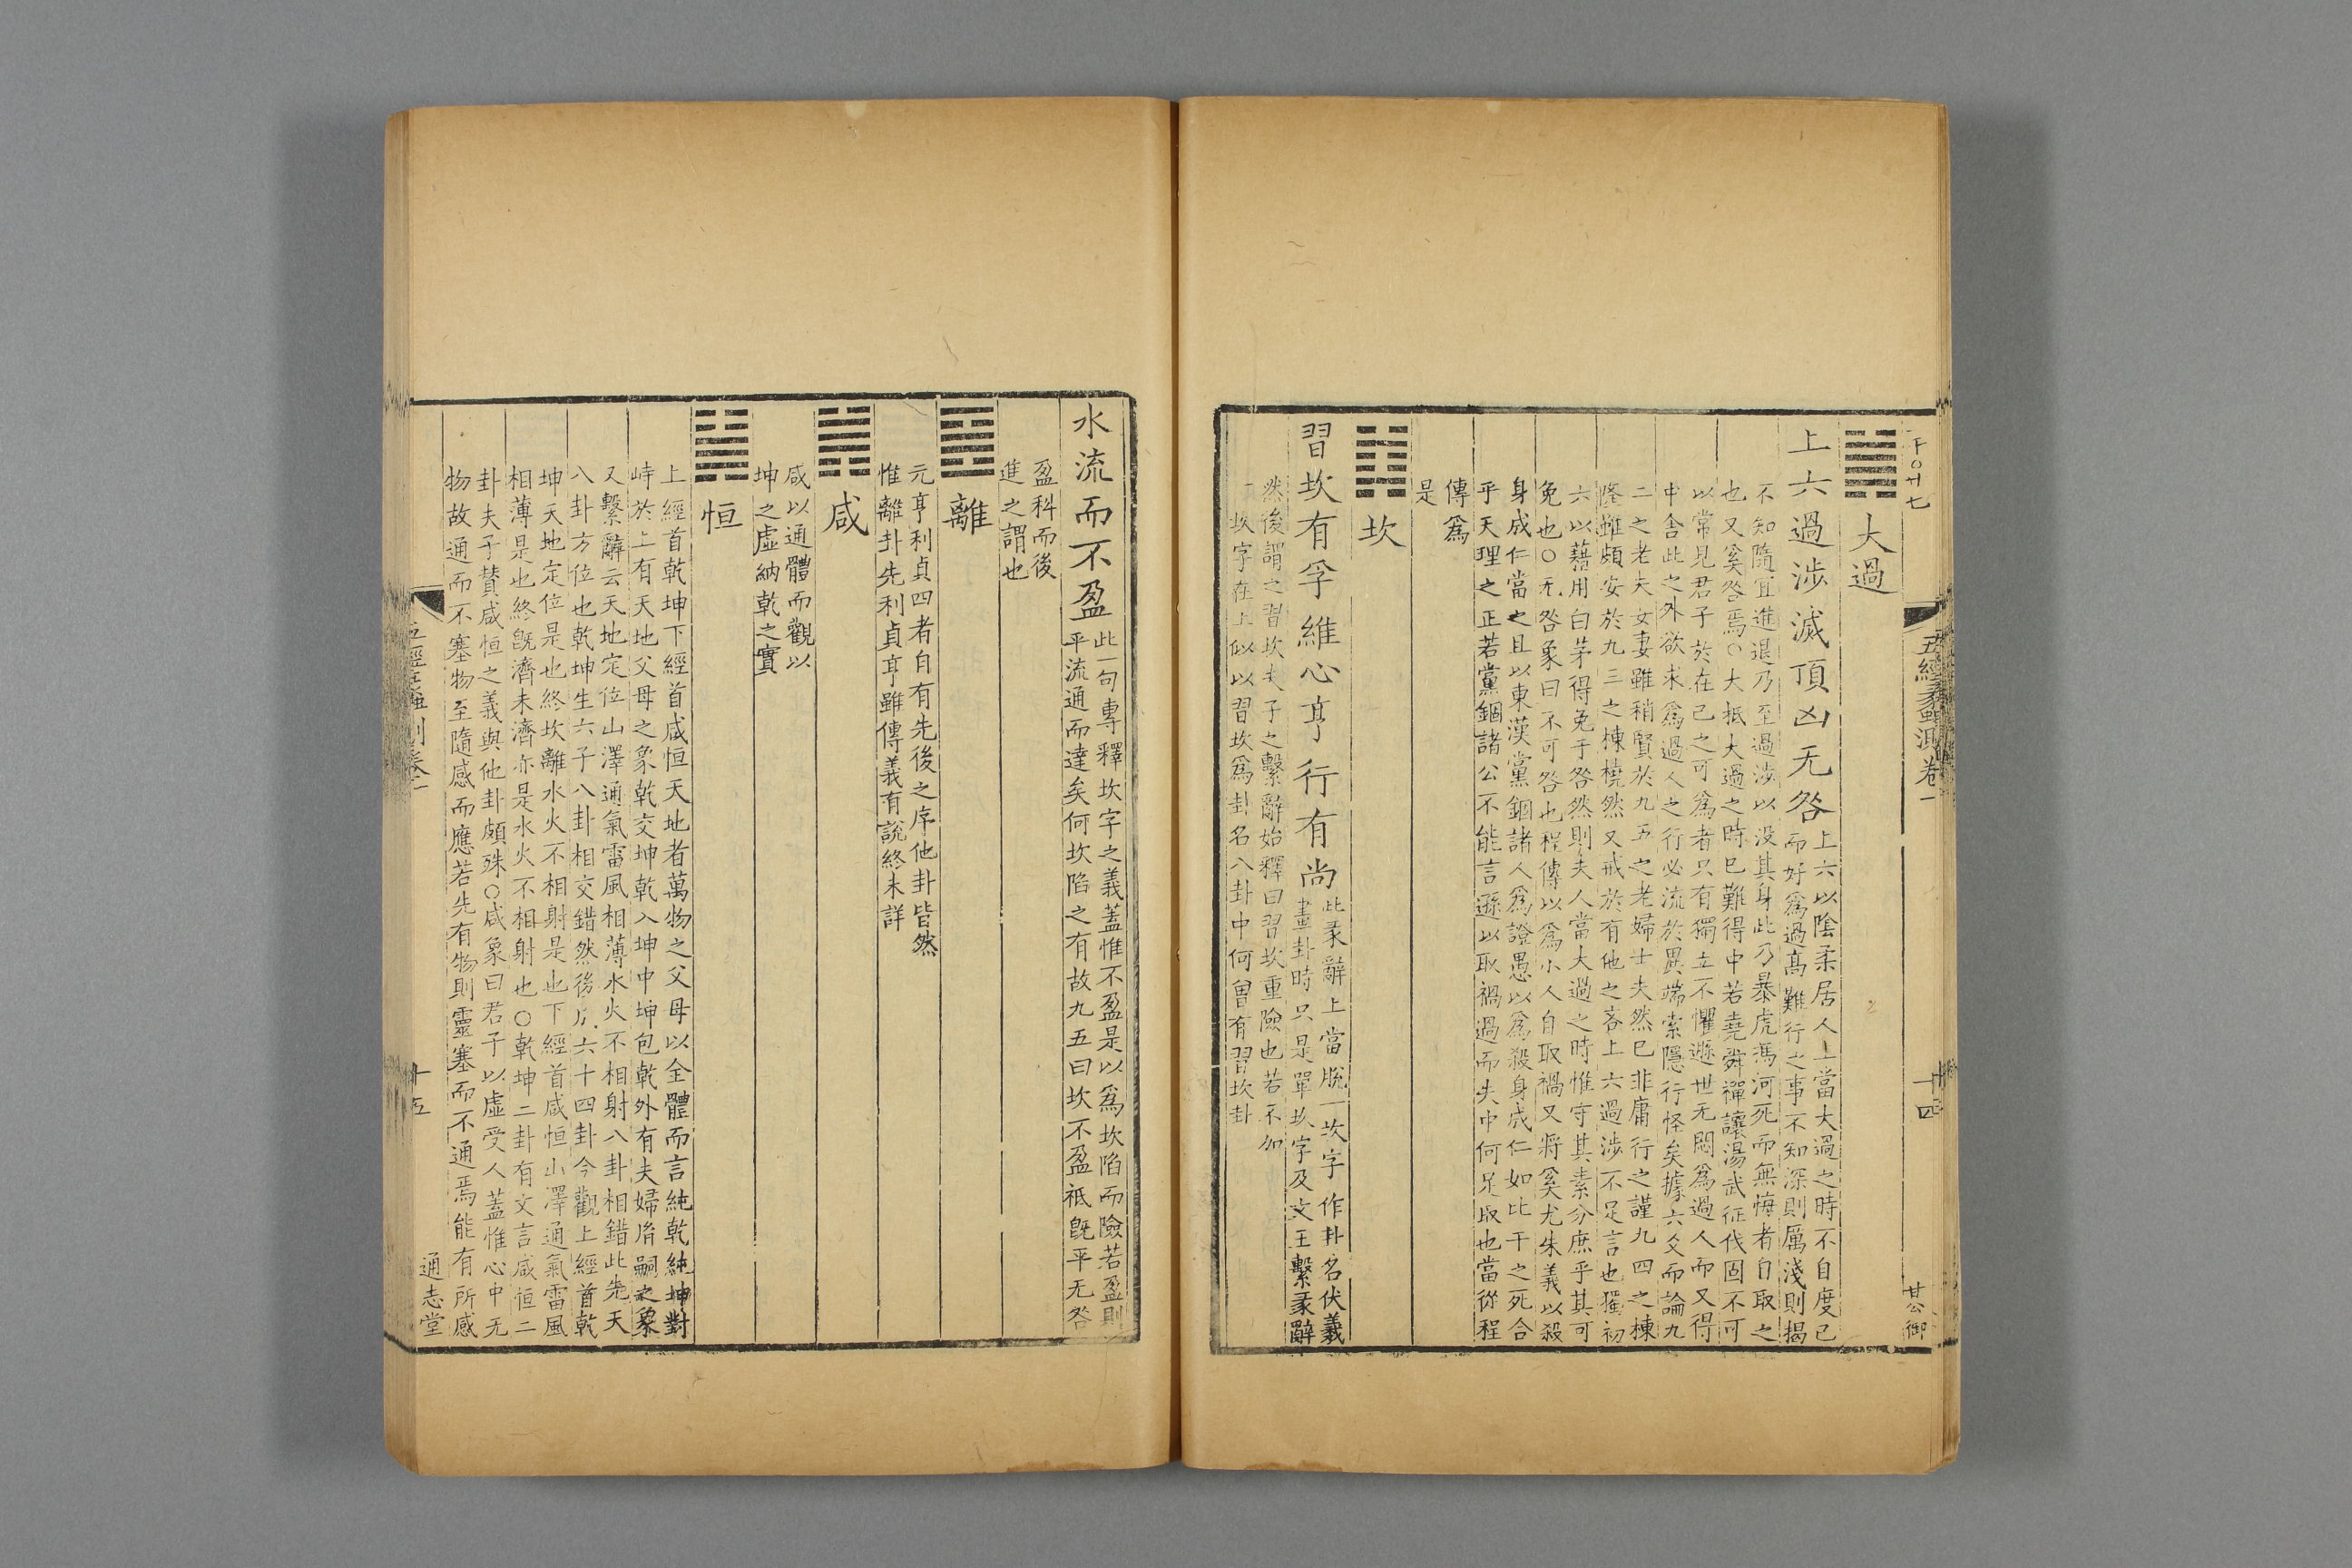 大過
上六過涉滅頂凶无咎上六以陰柔居人上當大過之時不自度已
而好爲過高難行之事不知深則厲淺則揭
不知隨宜進退乃至過涉以没其身此乃暴虎馮河死而無悔者自取之
也又奚咎焉○大抵大過之時已難得中若堯舜禪讓湯武征伐固不可
以常見君子於在己之可爲者只有獨立不懼遯世无悶爲過人而又得
中舍此之外欲求爲過人之行必流於異端索隱行怪矣據六爻而論九
二之老夫女妻雖稍賢於九五之老婦士夫然已非庸行之謹九四之棟
隆雖頗安於九三之棟橈然又戒於有他之吝上六過涉不足言也獨初
六以藉用白茅得免于咎然則夫人當大過之時惟守其素分庶乎其可
免也○无咎象曰不可咎也程傳以爲小人自取禍又將奚尤朱義以殺
身成仁當之且以東漢黨錮諸人爲證愚以爲殺身成仁如比干之死合
乎天理之正若黨錮諸公不能言遜以取禍過而失中何足取也當從程
傳爲
是
坎
習坎有孚維心亨行有尚此彖辭上當脫一坎字作卦名伏羲
畫卦時只是單坎字及文王繫彖辭
然後謂之習坎夫子之繫辭始釋曰習坎重險也若不加
一坎字在上似以習坎爲卦名八卦中何曾有習坎卦
五經蠡測卷一
十四
甘公御
水流而不盈此一句專釋坎字之義蓋惟不盈是以爲坎陷而險若盈則
平流通而達矣何坎陷之有故九五曰坎不盈祗旣平无咎
盈科而後
進之謂也
離
元亨利貞四者自有先後之序他卦皆然
惟離卦先利貞亨雖傳義有說終未詳
咸
咸以通體而觀以
坤之虛納乾之實
恒
上經首乾坤下經首咸恒天地者萬物之父母以全體而言純乾純坤對
峙於上有天地父母之象乾交坤乾入坤中坤包乾外有夫婦胎嗣之象
又繫辭云天地定位山澤通氣雷風相薄水火不相射八卦相錯此先天
八卦方位也乾坤生六子八卦相交錯然後 六十四卦今觀上經首乾
坤天地定位是也終坎離水火不相射是也下經首咸恒山澤通氣雷風
相薄是也終旣濟未濟亦是水火不相射也○乾坤二卦有文言咸恒二
卦夫子贊咸恒之義與他卦頗殊○咸象曰君子以虛受人蓋惟心中无
物故通而不塞物至隨感而應若先有物則靈塞而不通焉能有所感
十五
通志堂